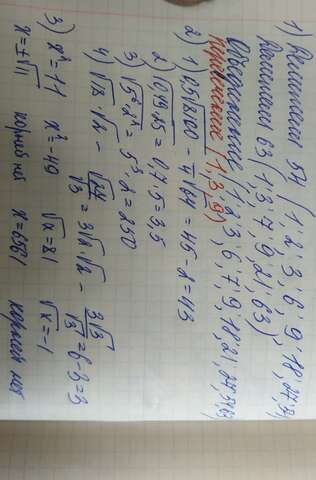 1) Делители 54 (1; 2; 3; 6; 9; 18; 27; 54)
Делители 63 (1; 3; 7; 9; 21; 63)
Объединение (1; 2; 3; 6; 7; 9; 18; 21; 27; 54; 63)
пересечение (1; 3; 9)
2) 1) 0,5√8100 - ¼√64 = 45 - 2 = 43
2) √0,49·25 = 0,7·5 = 3,5
3) √5⁶·2² = 5³·2 = 250
4) √18·√2 - √27/√3 = 3√2·√2 - 3√3/√3 = 6-3=3
3) x²=11 x²=-49 √x=81 √x=-1
x=±√11 корней нет x=6561 корней нет